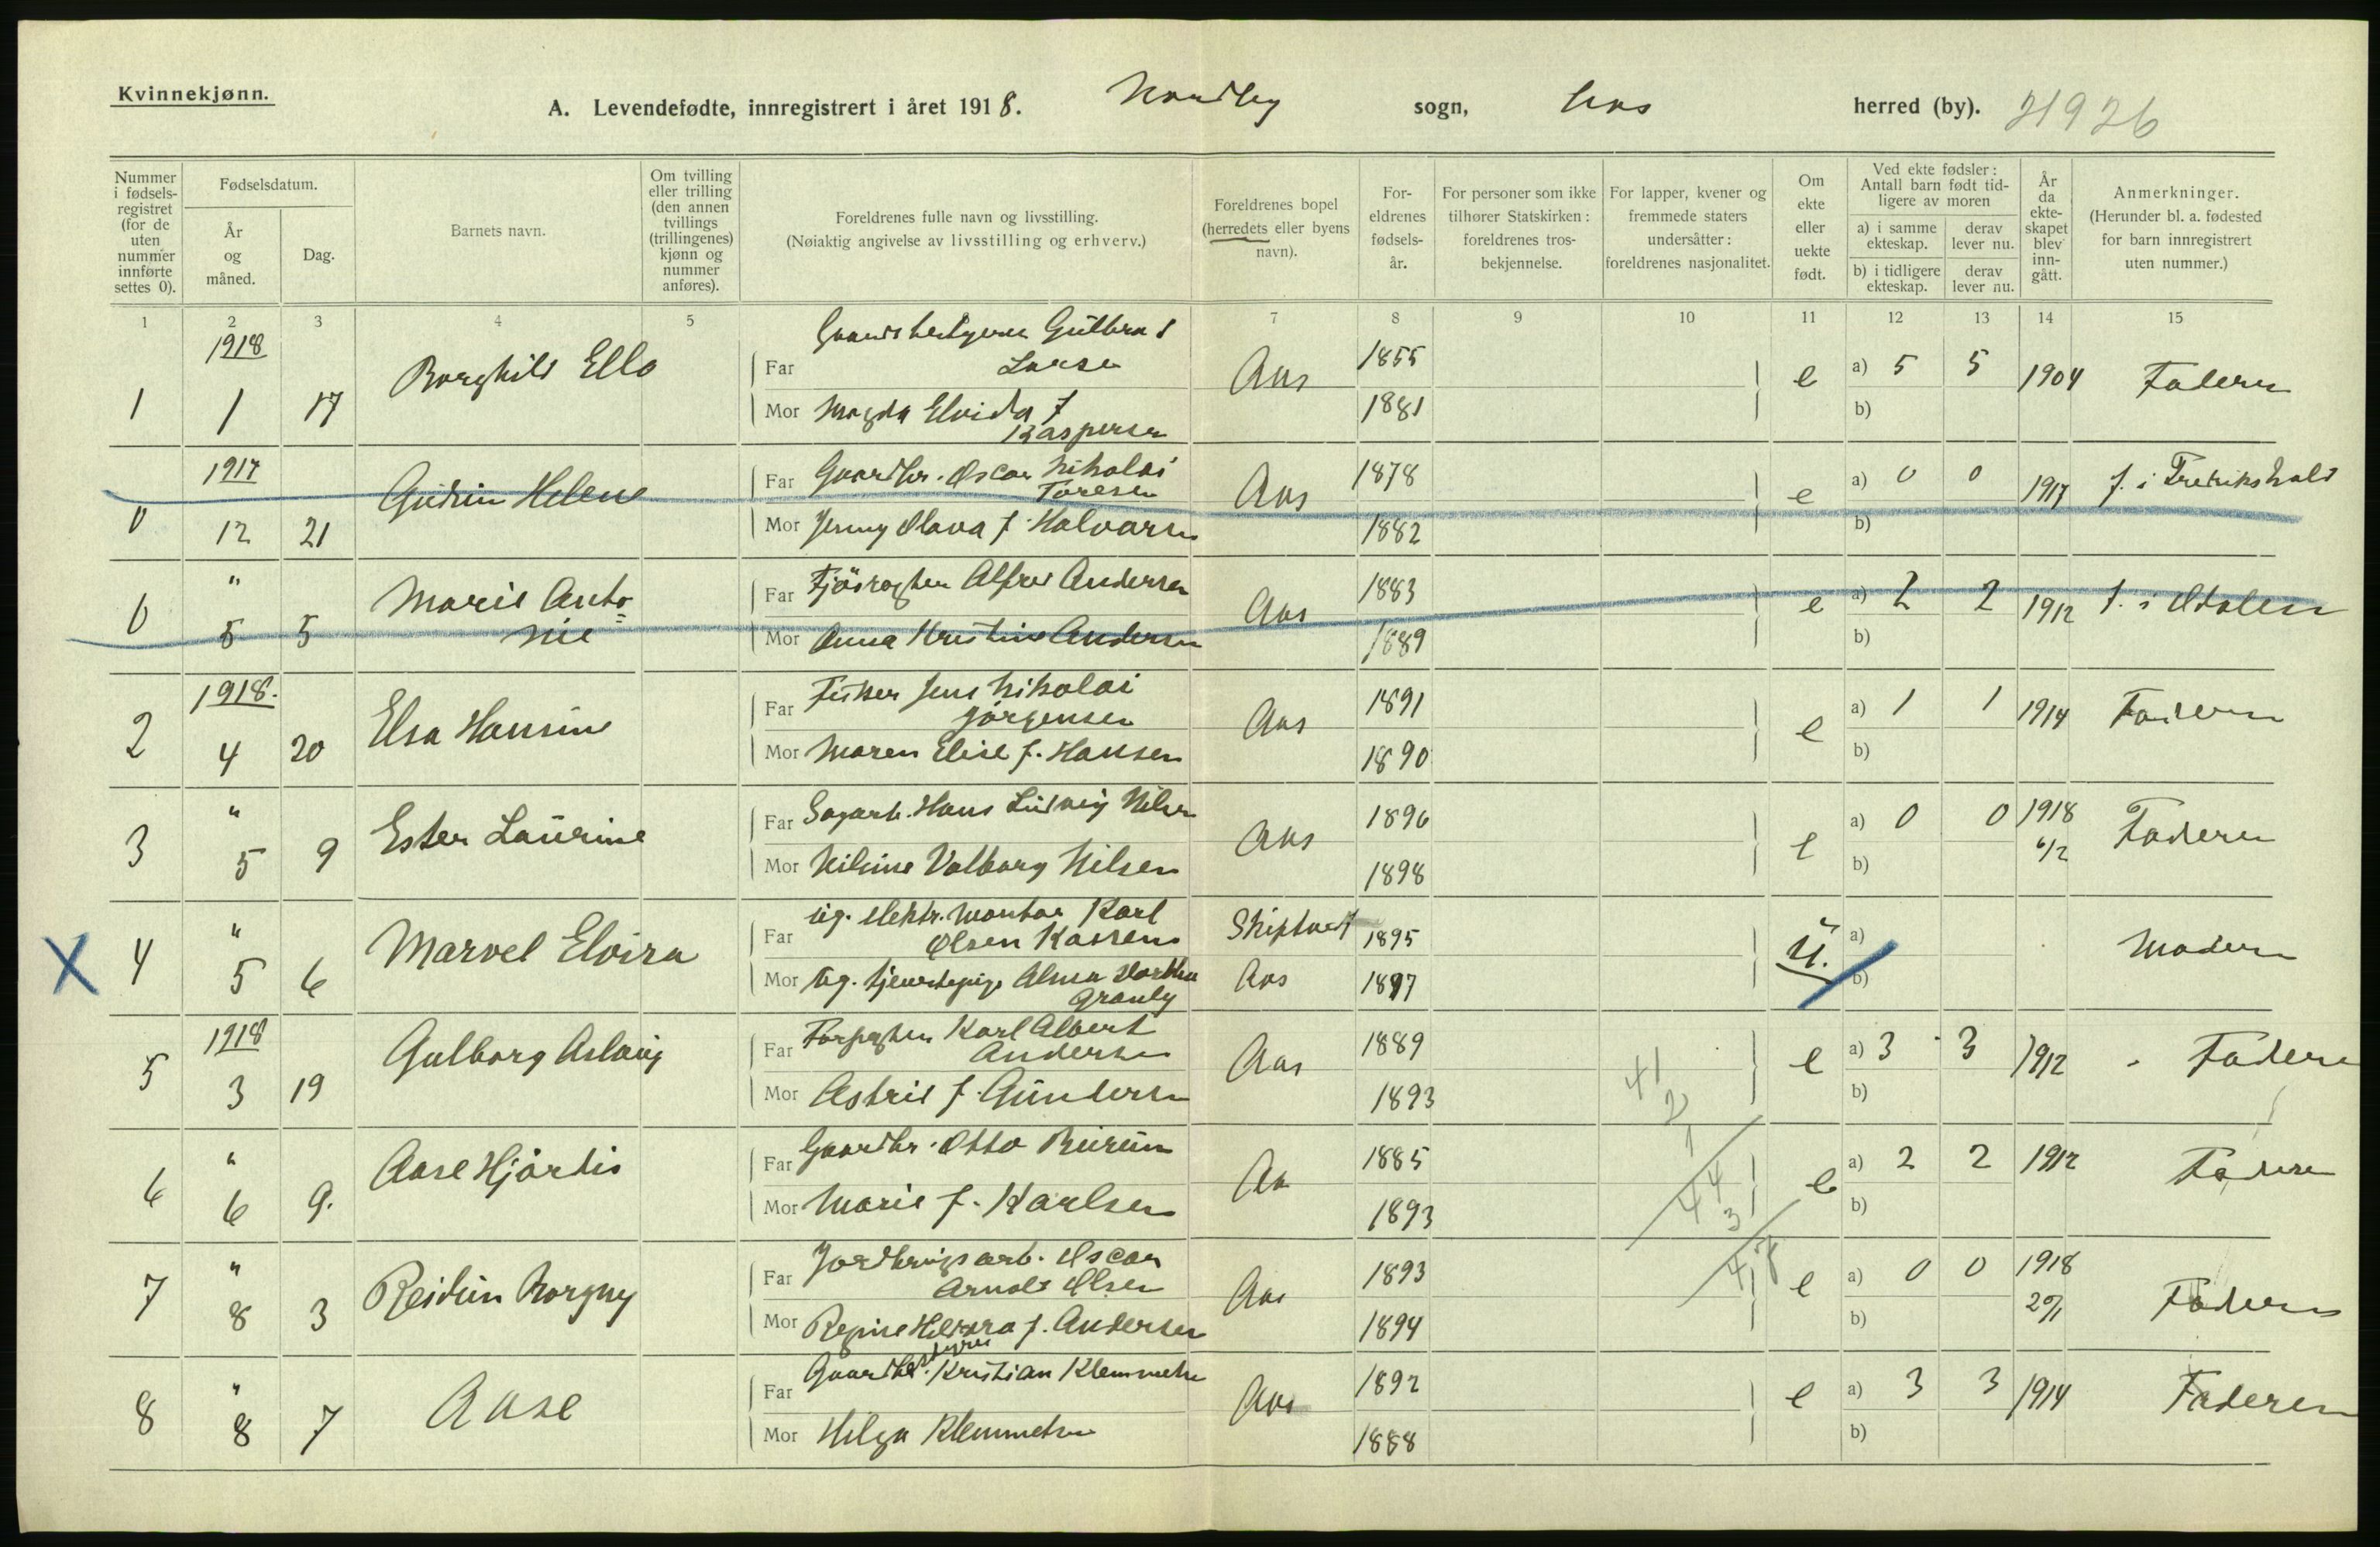 Kvinnekjønn.
A. Levendefødte, innregistrert i året 1918. Nordby sogn, Aas herred (by). 21926
Nummer i fødsels-registret (for de uten nummer innførte settes 0).
Fødselsdatum.
År og måned.
Dag.
Barnets navn.
Om tvilling eller trilling (den annen tvillings (trillingenes) kjønn og nummer anføres).
Foreldrenes fulle navn og livsstilling.
(Nøiaktig angivelse av livsstilling og erhverv.)
Foreldrenes bopel (herredets eller byens navn).
For-eldrenes fødsels-år.
For personer som ikke tilhører Statskirken: foreldrenes tros-bekjennelse.
For lapper, kvener og fremmede staters undersåtter: foreldrenes nasjonalitet.
Om ekte eller uekte født.
Ved ekte fødsler: Antall barn født tid-ligere av moren
a) i samme ekteskap. derav lever nu.
b) i tidligere ekteskap. derav lever nu.
År da ekte-skapet blev inn-gått.
Anmerkninger.
(Herunder bl. a. fødested for barn innregistrert uten nummer.)
1 2 3 4 5 7 8 9 10 11 12 13 14 15
1918
1 1 17 Borghild Ella
Far Gaardbestyrer Gulbrand
Larsen Aas 1855 e a) 5 5 1904 Faderen
Mor Magda Elvida f
Kaspersen 1881 b)
1917
0 12 21 Gudrun Helene
Far Gaardbr. Oscar Nikolai
Toresen Aas 1878 e a) 0 0 1917 f. i Fredrikshald
Mor Jenny Olava f. Halvorsen 1882 b)
"
0 5 5 Marie Anto=
nie
Far Fjøsrøgter Alfred Andersen Aas 1883 e a) 2 2 1912 f. i
Mor Anna Kristine Andersen 1889 b)
1918.
2 4 20 Elsa Hansine
Far Fisker Jens Nikolai
Jørgensen Aas 1891 e a) 1 1 1914 Faderen
Mor Maren Elise f. Hansen 1890 b)
"
3 5 9 Ester Laurine
Far Sagarb. Hans Ludvig Nilsen Aas 1896 e a) 0 0 1918 6/2 Faderen
Mor Nilsine Valborg Nilsen 1898 b)
"
X 4 5 6 Marvel Elvira
Far ug. elektr. montør Karl
Olsen Skiptvet 1895 u. a) Moderen
Mor ug. tjenestepige Alma
Granly Aas 1897 b)
1918
5 3 19 Gulborg Aslaug
Far Karl Albert
Andersen Aas 1889 e a) 3 3 1912 Faderen
Mor Astrid f. Gundersen 1893 b)
41
2
1
"
6 6 9. Aase Hjørdis
Far Gaardbr. Otto Burum Aas 1885 e a) 2 2 1912 Faderen
Mor Marie f. Karlsen 1893 b)
44
3
"
7 8 3 Reidun Borgny
Far Jordbrugsarb. Oscar
Arnold Olsen Aas 1893 e a) 0 0 1918 20/1 Faderen
Mor Regine f. Andersen 1894 b)
"
8 8 7 Aase
Far Gaardbestyrer Kristian Klemmetsen Aas 1892 e a) 3 3 1914 Faderen
Mor Helga Klemmetsen 1888 b)